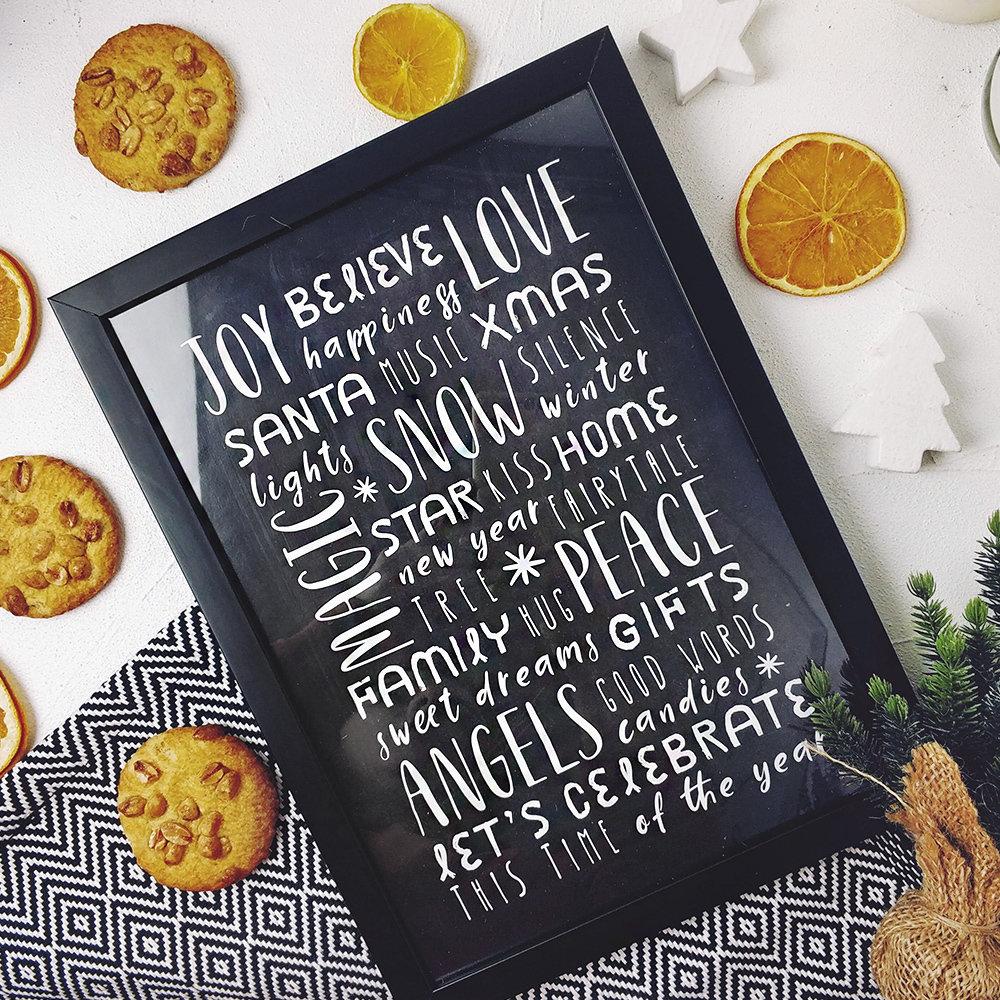 JOY BELIEVE LOVE
happiness
MUSIC XMAS
SANTA
SILENCE
lights
SNOW winter
MAGIC
STAR KISS HOME
new year FAIRYTALE
TREE
HUG PEACE
FAMILY
sweet dreams GIFTS
ANGELS GOOD WORDS
candies
LET'S CELEBRATE
THIS TIME of the year